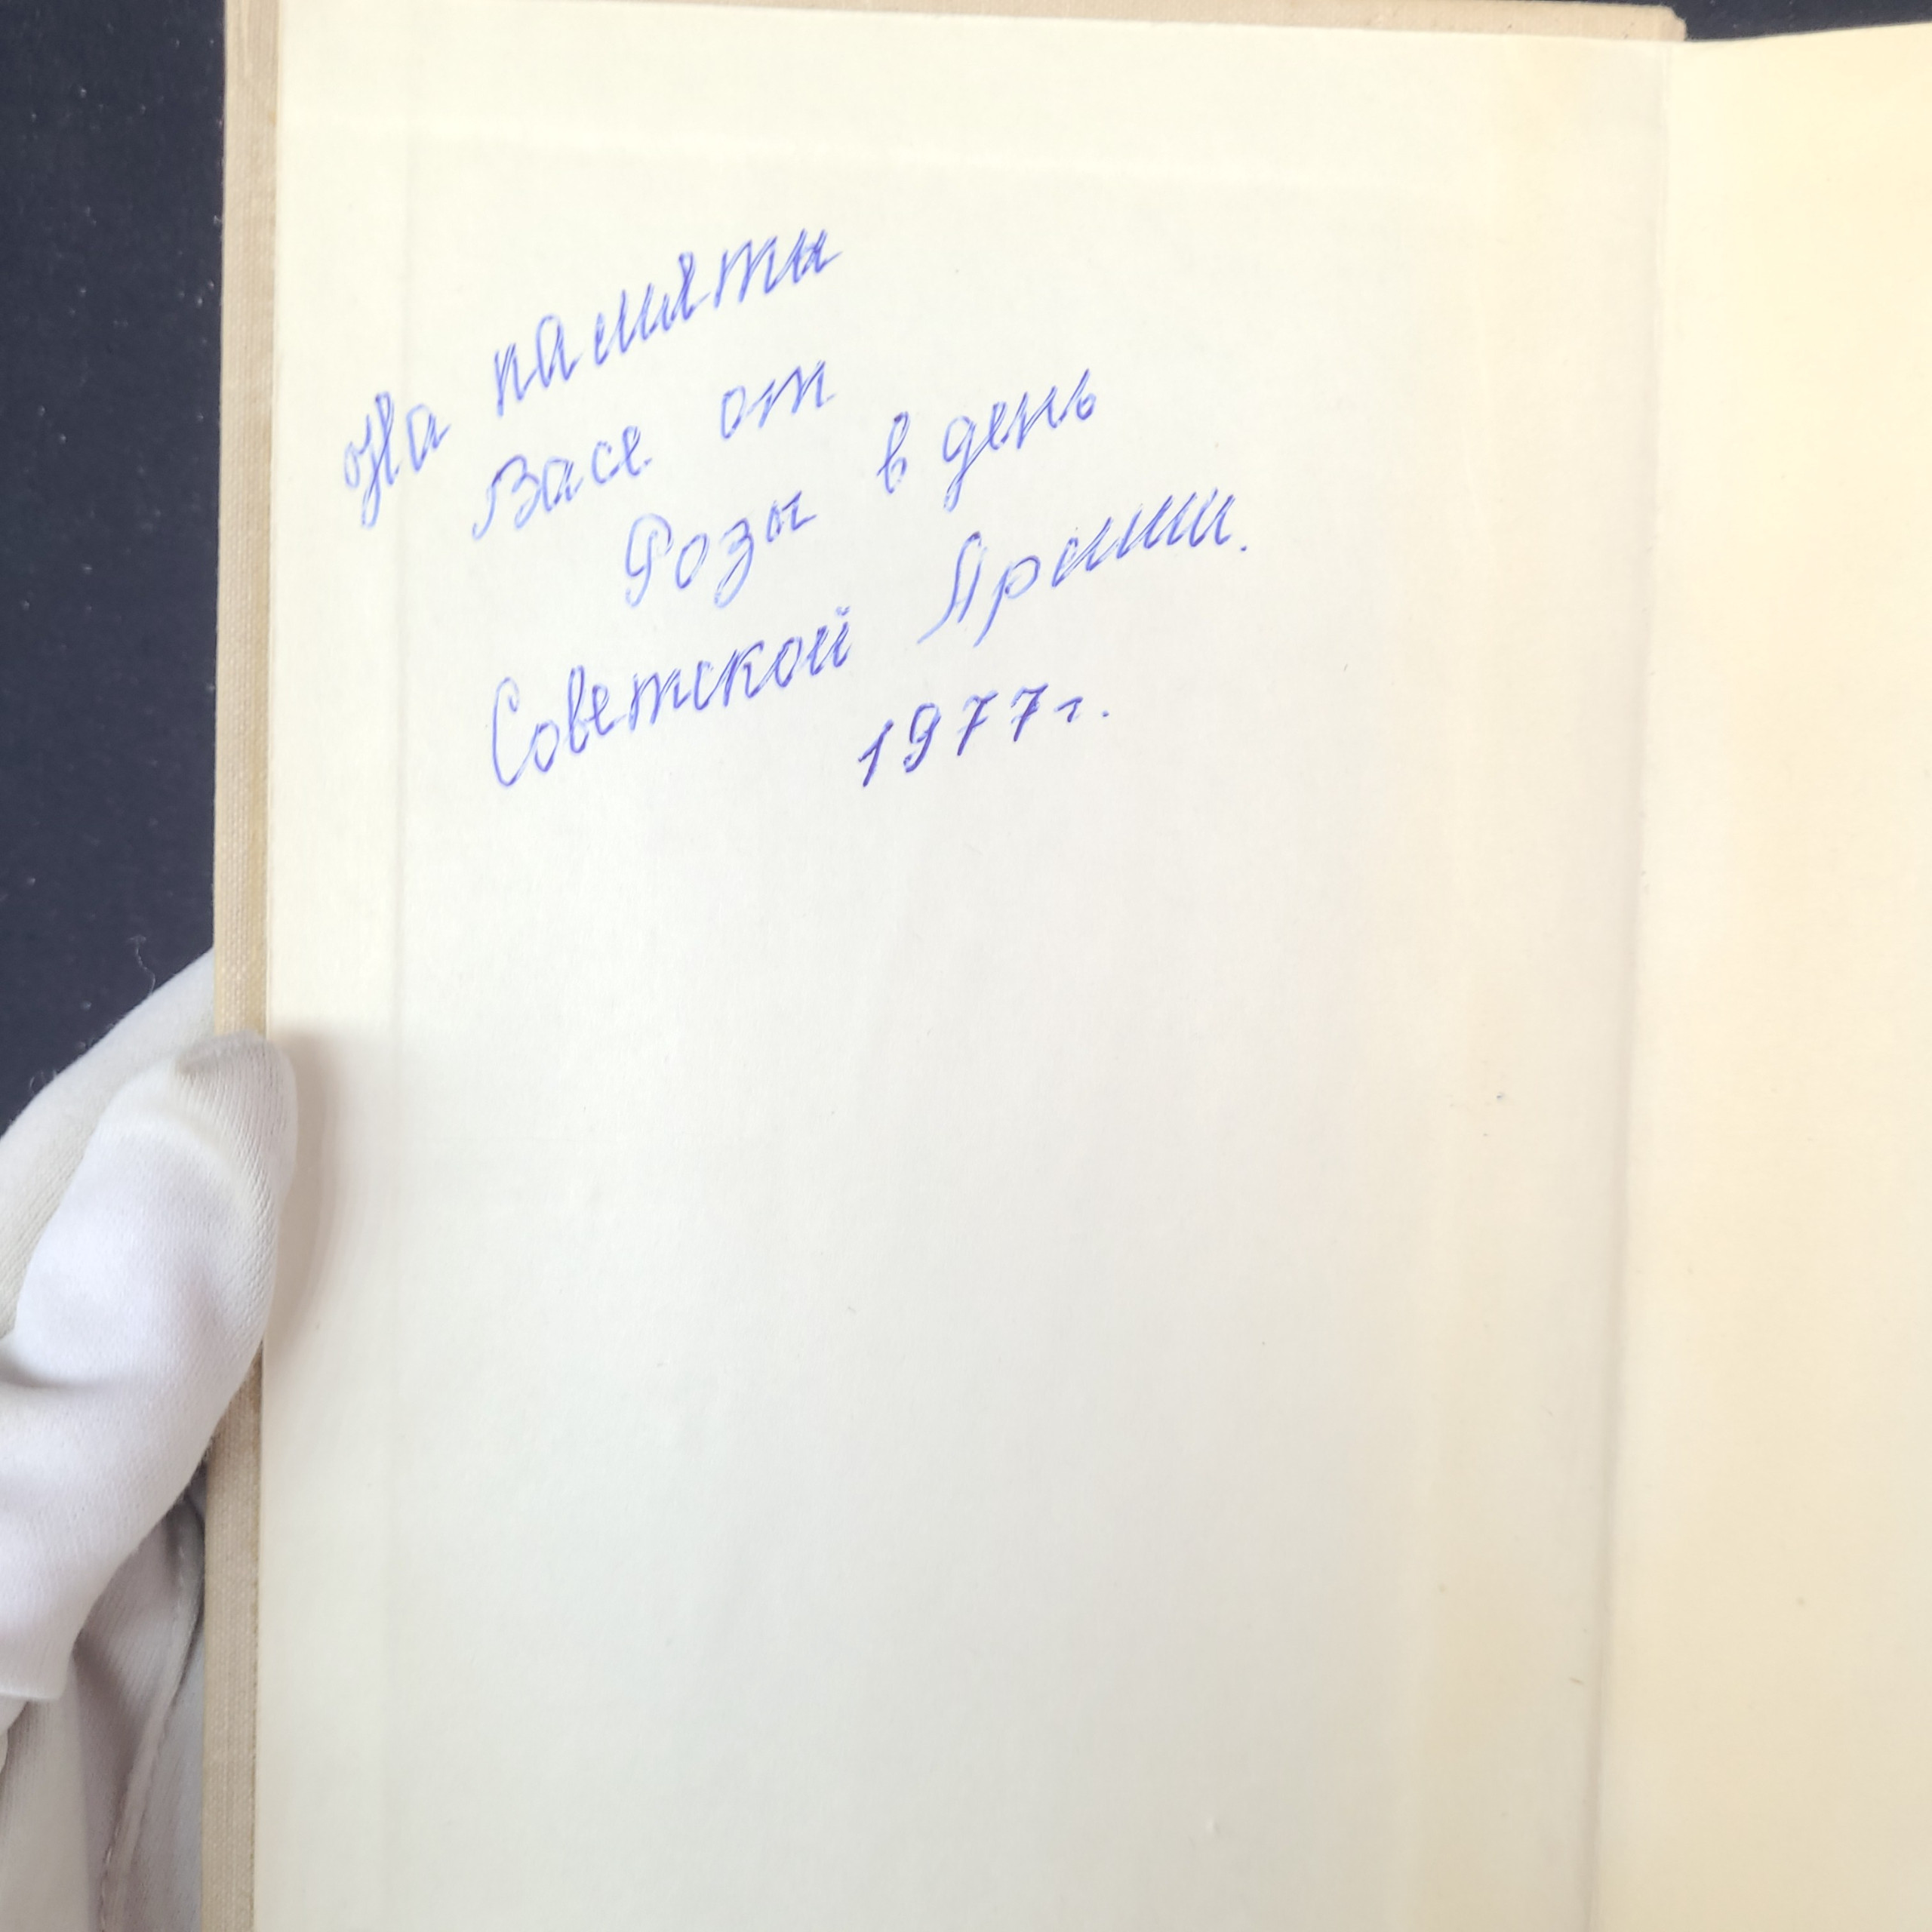 На памяты
Васе от
Розы в день
Советской Армии.
1977г.